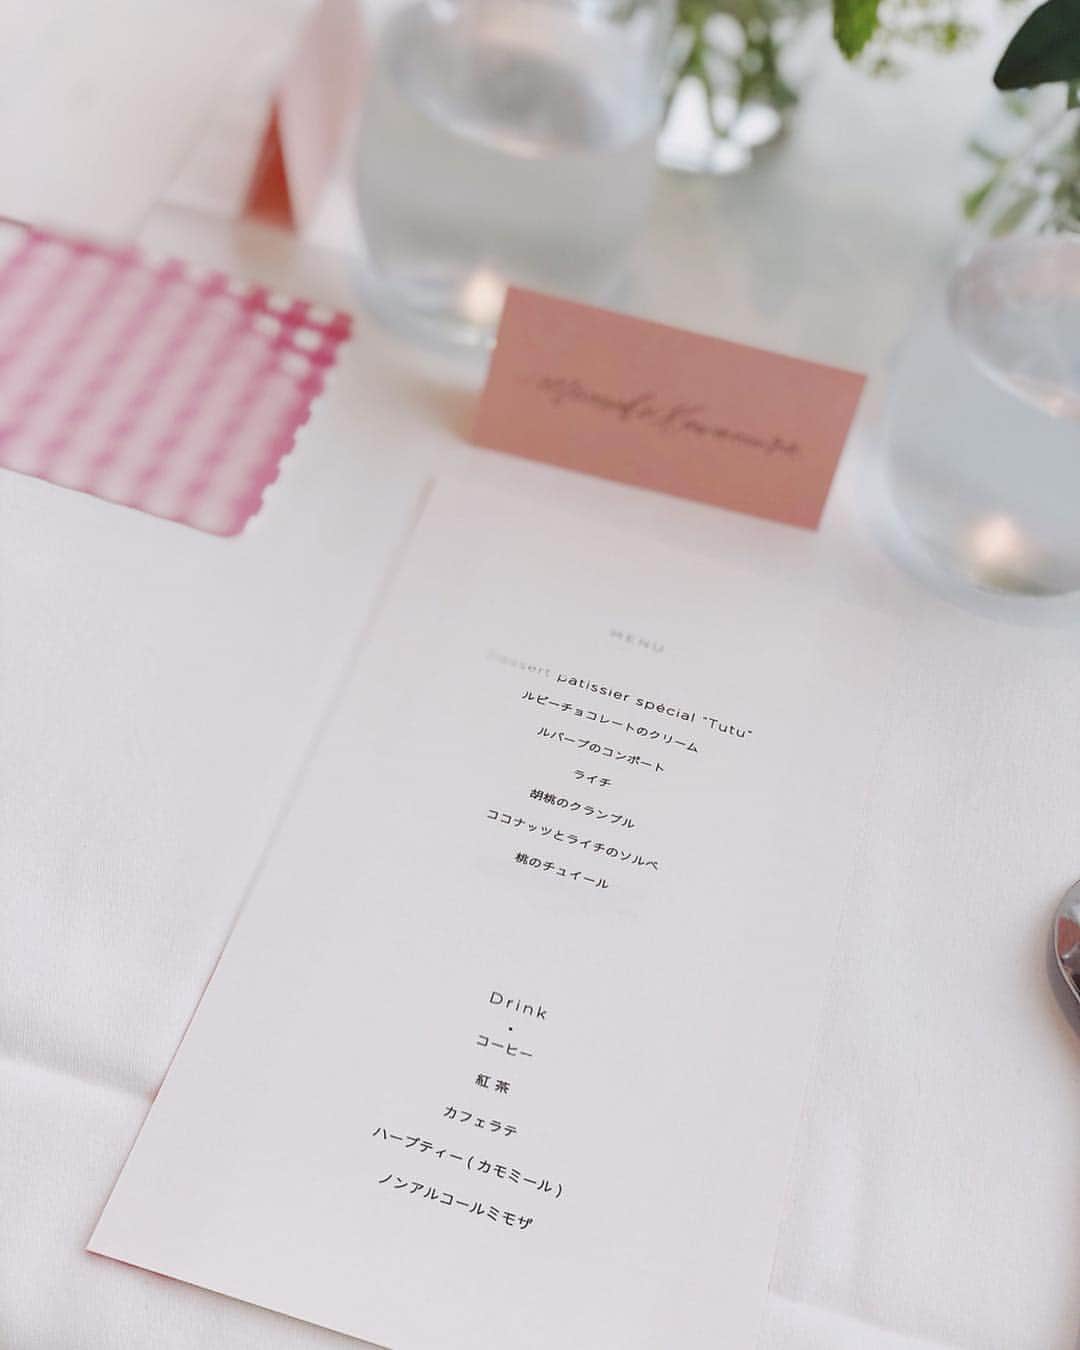 MENU
Dessert patissier spécial "Tutu"
ルビーチョコレートのクリーム
ルバーブのコンポート
ライチ
胡桃のクランブル
ココナッツとライチのソルベ
桃のチュイール
Drink
・
コーヒー
紅茶
カフェラテ
ハーブティー(カモミール)
ノンアルコールミモザ